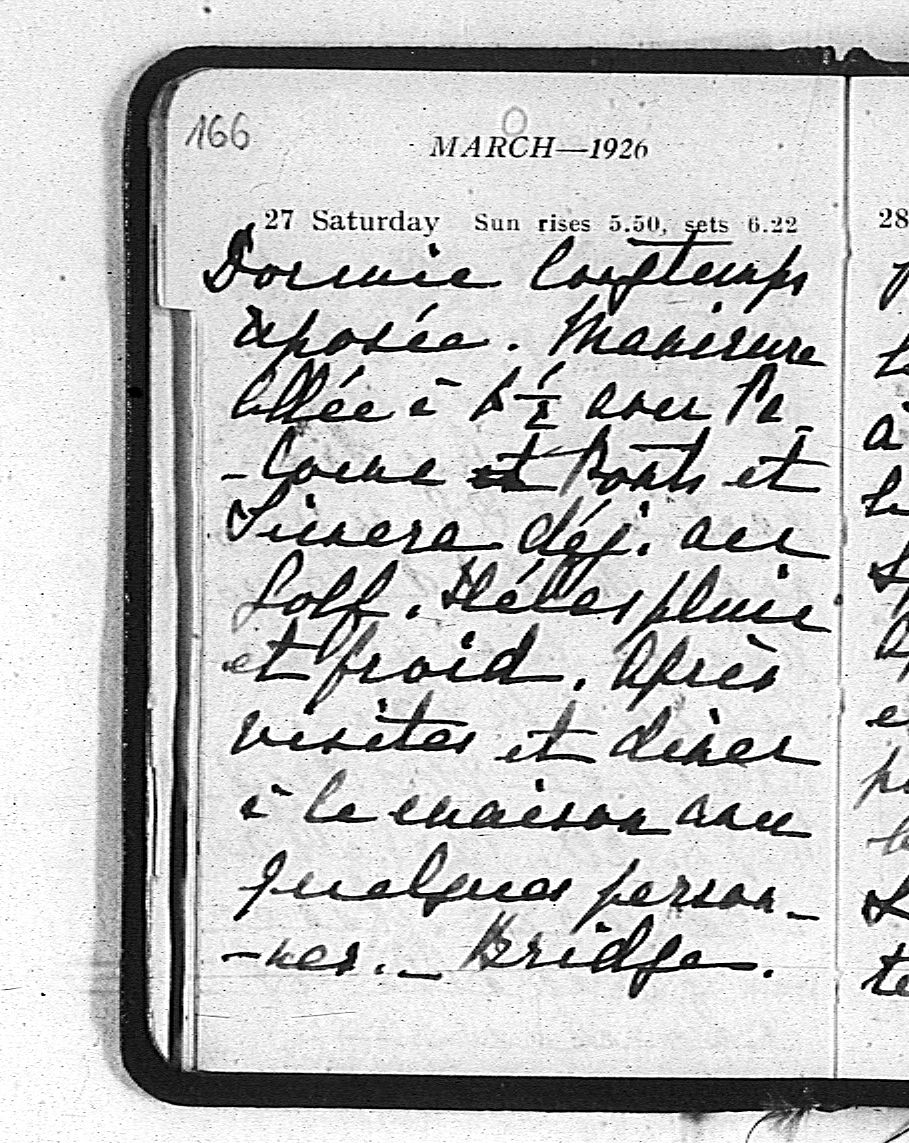 166
MARCH—1926
27 Saturday Sun rises 5.50, sets 6.22
Dormie longtemps
éposée. Manicure
Allée à 1 1/2 avec Pa-
et Ponts et
déj. au
Golf. Hélas pluie
et froid. Après
visites et diner
à la maison avec
quelques person-
-nes. _ Bridge.
28
à
te